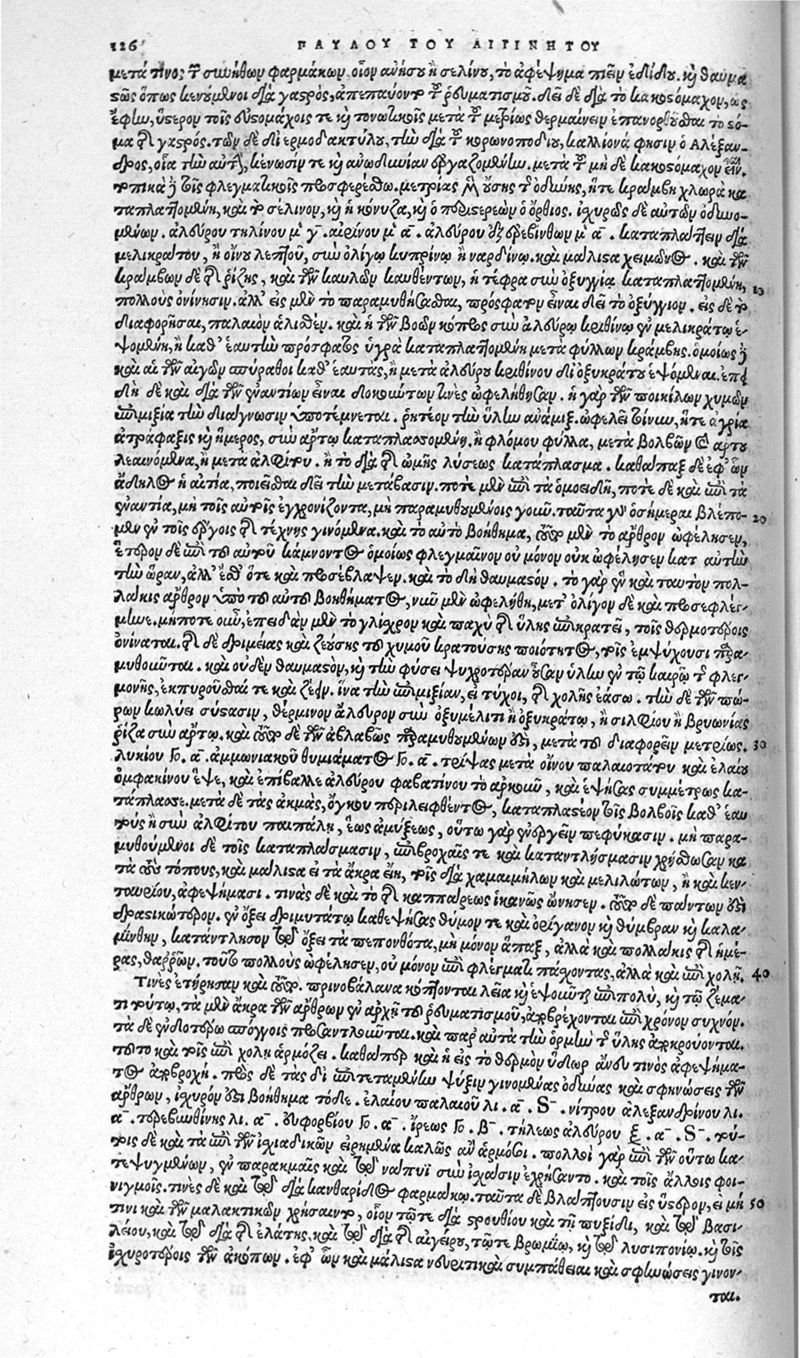 126 ΠΑΥΛΟΥ ΤΟΥ ΑΙΓΙΝΗΤΟΥ
μετά τινος τῶν συνήθων φαρμάκων. οἷον ἀνήσου ἢ σελίνου, τὸ ἀφέψημα πιεῖν ἐδίδου. καὶ θαυμα
στῶς ὅπως κενούμενοι διὰ γαστρὸς, ἀπεπαύοντο τοῦ ῥευματισμοῦ. δεῖ δὲ διὰ τὸ κακοστόμαχον, ὡς
ἔφην, ὕστερον τοῖς εὐστομάχοις τε καὶ τονωτικοῖς μετὰ τοῦ μετρίως θερμαίνειν ἐπανορθοῦσθαι τὸ στό-
μα τῆς γαστρός. τῶν δὲ δι' ἑρμοδακτύλου, τὴν διὰ τοῦ κορωνοποδίου, καλλίονά φησιν ὁ Ἀλέξαν-
δρος, οἷα τὴν αὐτὴν κένωσίν τε καὶ ἀνωδυνίαν ἐργαζομένην. μετὰ τοῦ μὴ δὲ κακοστόμαχον εἶναι.
τοῖς φλεγματικοῖς προσφερέσθω. μετρίας μὲν οὔσης τῆς ὀδύνης, ἥτε κράμβη χλωρὰ κα
ταπλαττομένη, καὶ τὸ σέλινον, καὶ ἡ κόνυζα, καὶ ὁ περιστερεὼν ὁ ὄρθιος. ἰσχυρῶς δὲ αὐτῶν ὀδυνο-
μένων. ἀλεύρου τηλίνου μ γ. αἰρίνου μ α. ἀλεύρου ἐξ ἐρεβίνθων μ α. καταπλάττειν διὰ
μελικράτου, ἢ οἴνου λεπτοῦ, σὺν ὀλίγῳ κυπρίνῳ ἢ ναρδίνῳ. καὶ μάλιστα χειμῶνος. καὶ τῶν
κραμβῶν δὲ τῆς ῥίζης, καὶ τῶν καυλῶν καυθέντων, ἡ τέφρα σὺν ὀξυγγίῳ καταπλαττομένη, 10
πολλοὺς ὀνίνησιν. ἀλλ' εἰς μὲν τὸ παραμυθήσασθαι, πρόσφατον εἶναι δεῖ τὸ ὀξύγγιον. εἰς δὲ τὸ
διαφορῆσαι, παλαιὸν ἁλισθέν. καὶ ἡ τῶν βοῶν κόπρος σὺν ἀλεύρῳ κριθίνῳ ἐν μελικράτῳ ἑ-
ψομένη, ἢ καθ' ἑαυτὴν πρόσφατος ὑγρὰ καταπλαττομένη μετὰ φύλλων κράμβης. ὁμοίως
καὶ αἱ τῶν αἰγῶν σπύραθοι καθ' ἑαυτὰς, ἢ μετὰ ἀλεύρου κριθίνου δι' ὀξυκράτου ἑψόμεναι. ἐπει
δὴ δὲ καὶ διὰ τῶν ἐναντίων εἶναι δοκούντων τινὲς ὠφελήθησαν. ἡ γὰρ τῶν ποικίλων χυμῶν
ἐπιμιξία τὴν διάγνωσιν ὑποτέμνεται. ῥητέον τὴν ὕλην ἀναμίξ. ὠφελεῖ τοίνυν, ἥτε ἀγρία
ἀτράφαξις καὶ ἥμερος, σὺν ἄρτῳ καταπλασσομένη. ἢ φλόμου φύλλα, μετὰ βολβῶν καὶ ἄρτου
λεαινόμενα, ἢ μετὰ ἀλφίτου. ἢ τὸ διὰ τῆς ὠμῆς λύσεως κατάπλασμα. καθάπαξ δὲ ἐφ' ὧν
ἄδηλος ἡ αἰτία, ποιεῖσθαι δεῖ τὴν μετάβασιν. ποτὲ μὲν ἐπὶ τὰ ὁμοειδῆ, ποτὲ δὲ καὶ ἐπὶ τὰ
ἐναντία, μὴ τοῖς αὐτοῖς ἐγχρονίζοντα, μὴ παραμυθουμένοις γοῦν. ταῦτα γὰρ ὁσημέραι βλέπο- 20
μεν ἐν τοῖς ἔργοις τῆς τέχνης γινόμενα. καὶ τὸ αὐτὸ βοήθημα, τόδε μὲν τὸ ἄρθρον ὠφέλησεν,
ἕτερον δὲ ἐπὶ τοῦ αὐτοῦ κάμνοντος ὁμοίως φλεγμαῖνον οὐ μόνον οὐκ ὠφέλησεν κατ' αὐτὴν
τὴν ὥραν, ἀλλ' ἔσθ' ὅτε καὶ προσέβλαψεν. καὶ τὸ δὴ θαυμαστόν. τὸ γὰρ ἓν καὶ ταυτὸν πολ-
λάκις ἄρθρον ὑπὸ τοῦ αὐτοῦ βοηθήματος, νῦν μὲν ὠφελήθη, μετ' ὀλίγον δὲ καὶ προσεφλέγ-
μηνε. μήποτε οὖν, ἐπειδὰν μὲν τὸ γλίσχρον καὶ παχὺ τῆς ὕλης ἐπικρατεῖ, τοῖς θερμοτέροις
ὀνίναται. τῆς δὲ δριμείας καὶ ζεούσης τοῦ χυμοῦ κρατούσης ποιότητος, τοῖς ἐμψύχουσι παρα-
μυθοῦνται. καὶ οὐδὲν θαυμαστὸν, καὶ τὴν φύσει ψυχροτέραν οὖσαν ὕλην ἐν τῷ καιρῷ τῆς φλεγ-
μονῆς, ἐκπυροῦσθαί τε καὶ ζεῖν. ἵνα τὴν ἐπιμιξίαν, εἰ τύχοι, τῆς χολῆς ἐάσω. τὴν δὲ τῶν πώ-
ρων κωλύει σύστασιν, θέρμινον ἄλευρον σὺν ὀξυμέλιτι ἢ ὀξυκράτῳ, ἢ σιλφίου ἢ βρυωνίας
ῥίζα σὺν ἄρτῳ. καὶ τόδε δὲ τῶν ἀβλαβῶς παραμυθουμένων ἐστὶ, μετὰ τοῦ διαφορεῖν μετρίως. 30
λυκίου Γο. α. ἀμμωνιακοῦ θυμιάματος Γο. α. τρίψας μετὰ οἴνου παλαιοτάτου καὶ ἐλαίου
ὀμφακίνου ἕψε, καὶ ἐπίβαλλε ἀλεύρου φαβατίνου τὸ ἀρκοῦν, καὶ ἑψήσας συμμέτρως κα-
τάπλασσε. μετὰ δὲ τὰς ἀκμὰς, ὄγκου περιλειφθέντος, καταπλαστέον τοῖς βολβοῖς καθ' ἑαυ
τοὺς ἢ σὺν ἀλφίτου παιπάλῃ, ἕως ἀμύξεως, οὕτω γὰρ ἐνεργεῖν πεφύκασιν. μὴ παρα-
μυθούμενοι δὲ τοῖς καταπλάσμασιν, ἐπιβροχαῖς τε καὶ καταντλήσμασιν χρήσθωσαν κα
τὰ τοὺς τόπους, καὶ μάλιστα εἰ τὰ ἄκρα εἴη, τοῖς διὰ χαμαιμήλων καὶ μελιλώτων, ἢ καὶ κεν-
ταυρίου, ἀφεψήμασι. τινὰς δὲ καὶ τὸ τῆς καππάρεως ἱκανῶς ὤνησεν. τόδε δὲ πάντων ἐστὶ
δραστικώτερον. ἐν ὄξει δριμυτάτῳ καθεψήσας θύμον τε καὶ ὀρίγανον καὶ θύμβραν καὶ καλα-
μίνθην, κατάντλησον τῷ ὄξει τὰ πεπονθότα, μὴ μόνον ἅπαξ, ἀλλὰ καὶ πολλάκις τῆς ἡμέ-
ρας, θαῤῥῶν. τοῦτο πολλοὺς ὠφέλησεν, οὐ μόνον ἐπὶ φλέγματι πάσχοντας, ἀλλὰ καὶ ἐπὶ χολῇ. 40
Τινὲς ἐτήρησαν καὶ τόδε. πρινοβάλανα κόπτονται λεῖα καὶ ἕψονται ἐπιπολὺ, καὶ τῷ ζέμα-
τι τούτῳ, τὰ μὲν ἄκρα τῶν ἄρθρων ἐν ἀρχῇ τοῦ ῥευματισμοῦ, ἀποβρέχονται ἐπὶ χρόνον συχνόν.
τὰ δὲ ἐνδοτέρω σπόγγοις προσαντλοῦνται. καὶ παρ' αὐτὰ τὴν ὁρμὴν τῆς ὕλης ἀποκρούονται.
τοῦτο καὶ τοῖς ἐπὶ χολῇ ἁρμόζει. καθάπερ καὶ ἡ εἰς τὸ θερμὸν ὕδωρ ἄνευ τινὸς ἀφεψήμα-
τος ἀποβροχή. πρὸς δὲ τὰς δι' ἐπιτεταμένην ψύξιν γινομένας ὀδύνας καὶ σφηνώσεις τῶν
ἄρθρων, ἰσχυρόν ἐστι βοήθημα τόδε. ἐλαίου παλαιοῦ λι. α. S. νίτρου ἀλεξανδρίνου λι.
α. τερεβινθίνης λι. α. εὐφορβίου Γο. α. ἴρεως Γο. β. τήλεως ἀλεύρου ξ. α. S. τού-
τοις δὲ καὶ τὰ ἐπὶ τῶν ἰσχιαδικῶν εἰρημένα καλῶς ἂν ἁρμόσοι. πολλοὶ γὰρ ἐπὶ τῶν οὕτω κα-
τεψυγμένων, ἐν παρακμαῖς καὶ τῷ νάπυϊ σὺν ἰσχάσιν ἐχρήσαντο. καὶ τοῖς ἄλλοις φοι-
νιγμοῖς. τινὲς δὲ καὶ τῷ διὰ κανθαρίδος φαρμάκῳ. ταῦτα δὲ βλάπτουσιν εἰς ὕστερον, εἰ μή 50
τινι καὶ τῶν μαλακτικῶν χρήσαιντο, οἷον τῷτε διὰ στρουθίου καὶ τῇ πυξίδι, καὶ τῷ βασι-
λείου, καὶ τῷ διὰ τῆς ἐλάτης, καὶ τῷ διὰ τῆς αἰγείρου, τῷτε βρωμίῳ, καὶ τῷ λυσιπονίῳ. καὶ τοῖς
ἰσχυροτέροις τῶν ἀκόπων. ἐφ' ὧν καὶ μάλιστα νευριτικαὶ συμπάθειαι καὶ σφηνώσεις γίνον-
ται.